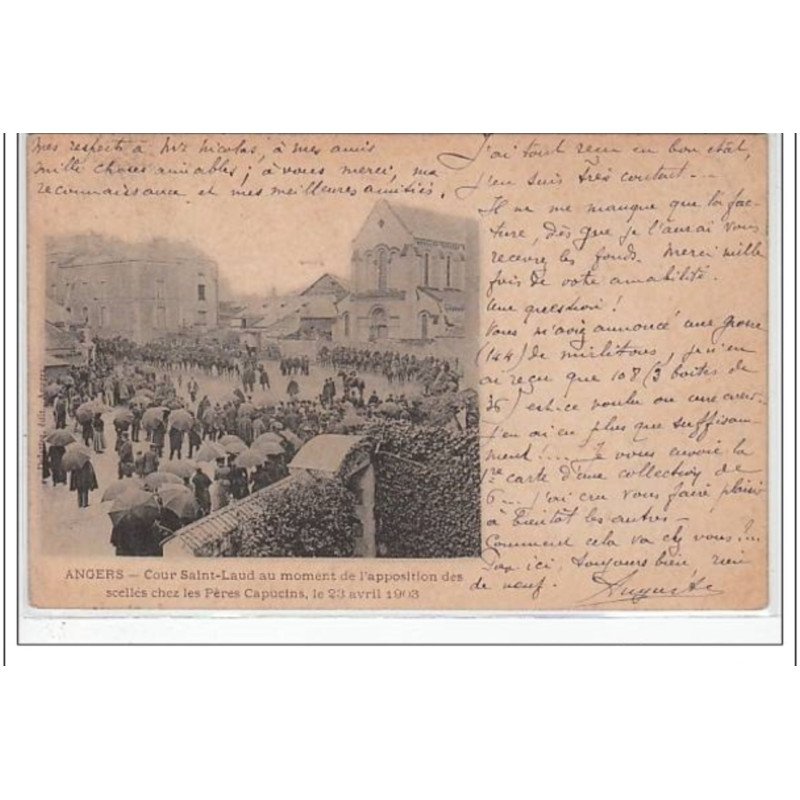 Mes respects à Mr Nicolas, à mes amis
mille choses aimables ; à vous merci, ma
reconnaissance et mes meilleures amitiés.
J'ai tout reçu en bon état,
j'en suis très content...
Il ne me manque que la fac-
ture, dès que je l'aurai vous
recevrez les fonds. Merci mille
fois de votre amabilité.
Une question !
Vous m'aviez annoncé une grosse
(144) de mirlitons, je n'en
ai reçu que 108 (3 boites de
36) est-ce voulu ou une erreur
j'en ai en plus que suffisam-
ment !... Je vous envoie la
1re carte d'une collection de
6... j'ai cru vous faire plaisir
à bientôt les autres -
Comment cela va chez vous ?...
Par ici, toujours bien, rien
de neuf. Auguste
ANGERS — Cour Saint-Laud au moment de l'apposition des
scellés chez les Pères Capucins, le 23 avril 1903